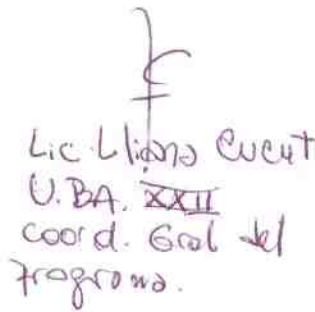 Lic. Lliana Cucut
U.BA. XXII
coord. Gral del
programa.